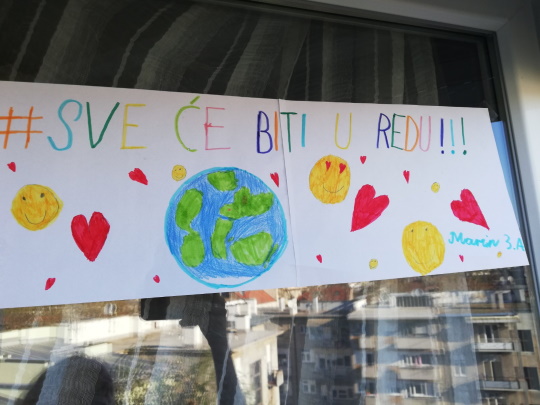 #SVE ĆE BITI U REDU!!!
Marin 3.A